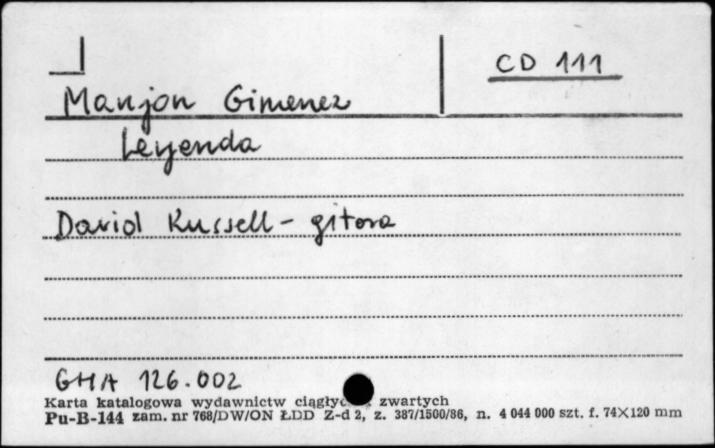 CD 111
Manjon Gimenez
Leyenda
David Russell - gitara
GHA 126.002
Karta katalogowa wydawnictw ciągłyc zwartych
Pu-B-144 zam. nr 768/DW/ON ŁDD Z-d 2, z. 387/1500/86, n. 4 044 000 szt. f. 74×120 mm